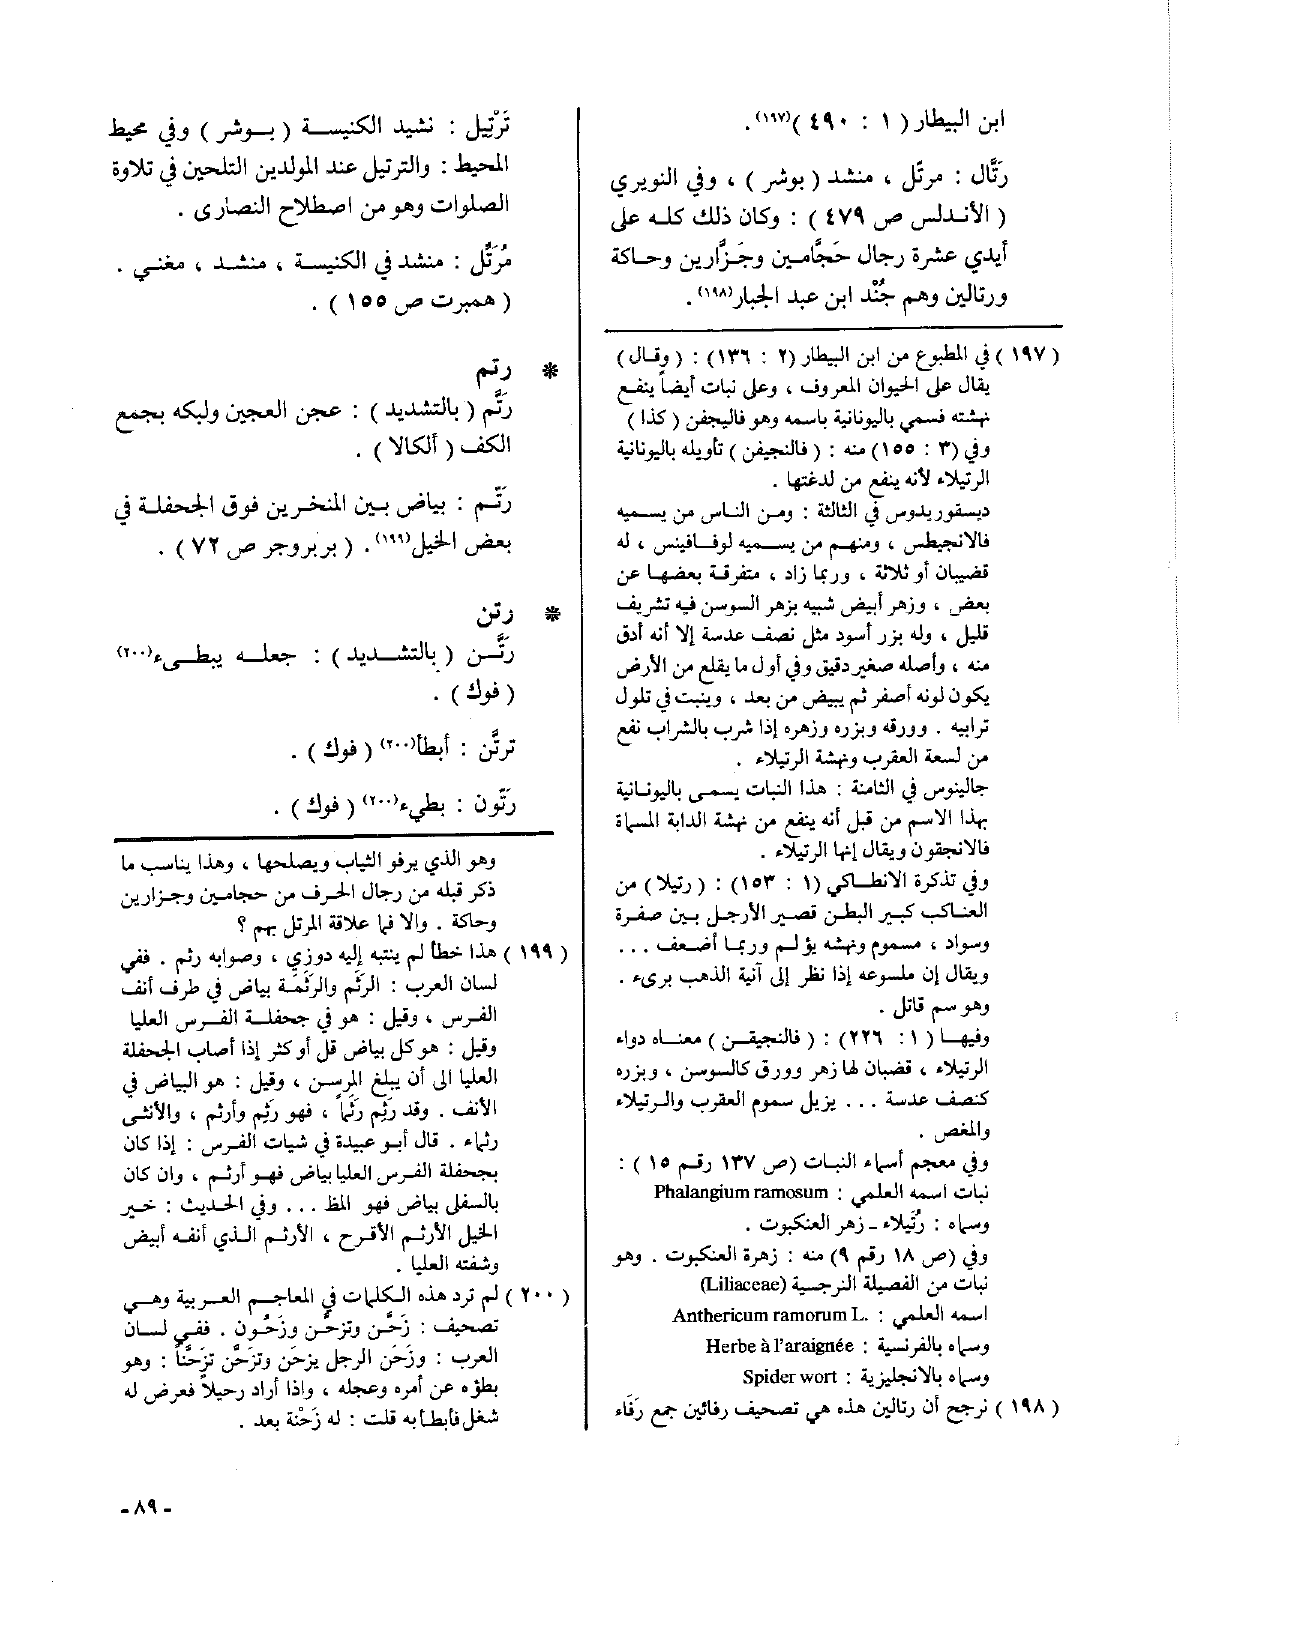 ابن البيطار ( ١ : ٤٩٠ )(١٩٧).
رَتَّال : مرتّل ، منشد ( بوشر ) ، وفي النويري
( الأندلس ص ٤٧٩ ) : وكان ذلك كله على
أيدي عشرة رجال حَجَّامين وجَزَّارين وحاكة
ورتالين وهم جُنْد ابن عبد الجبار(١٩٨).
( ١٩٧ ) في المطبوع من ابن البيطار (٢ : ١٣٦) : ( وقال )
يقال على الحيوان المعروف ، وعلى نبات أيضاً ينفع
نهشته فسمي باليونانية باسمه وهو فاليجفن ( كذا )
وفي (٣ : ١٥٥) منه : ( فالنجيفن ) تأويله باليونانية
الرتيلاء لأنه ينفع من لدغتها .
ديسقوريدوس في الثالثة : ومن الناس من يسميه
فالانجيطس ، ومنهم من يسميه لوقافينس ، له
قضيبان أو ثلاثة ، وربما زاد ، متفرقة بعضها عن
بعض ، وزهر أبيض شبيه بزهر السوسن فيه تشريف
قليل ، وله بزر أسود مثل نصف عدسة إلا أنه أدق
منه ، وأصله صغير دقيق وفي أول ما يقلع من الأرض
يكون لونه أصفر ثم يبيض من بعد ، وينبت في تلول
ترابيه . وورقه وبزره وزهره إذا شرب بالشراب نفع
من لسعة العقرب ونهشة الرتيلاء .
جالينوس في الثامنة : هذا النبات يسمى باليونانية
بهذا الاسم من قبل أنه ينفع من نهشة الدابة المسماة
فالانجقون ويقال إنها الرتيلاء .
وفي تذكرة الانطاكي (١ : ١٥٣) : ( رتيلا ) من
العناكب كبير البطن قصير الأرجل بين صفرة
وسواد ، مسموم ونهشه يؤلم وربما أضعف ...
ويقال إن ملسوعه إذا نظر إلى آنية الذهب برىء .
وهو سم قاتل .
وفيها ( ١ : ٢٢٦) : ( فالنجيقن ) معناه دواء
الرتيلاء ، قضبان لها زهر وورق كالسوسن ، وبزره
كنصف عدسة ... يزيل سموم العقرب والرتيلاء
والمغص .
وفي معجم أسماء النبات (ص ١٣٧ رقم ١٥ ) :
نبات اسمه العلمي : Phalangium ramosum
وسماه : رُتَيلاء - زهر العنكبوت .
وفي (ص ١٨ رقم ٩) منه : زهرة العنكبوت . وهو
نبات من الفصيلة النرجسية (Liliaceae)
اسمه العلمي : Anthericum ramorum L.
وسماه بالفرنسية : Herbe à l'araignée
وسماه بالانجليزية : Spider wort
( ١٩٨ ) نرجح أن رتالين هذه هي تصحيف رفائين جمع رَفّاء
تَرْتيل : نشيد الكنيسة ( بوشر ) وفي محيط
المحيط : والترتيل عند المولدين التلحين في تلاوة
الصلوات وهو من اصطلاح النصارى .
مُرَتِّل : منشد في الكنيسة ، منشد ، مغني .
( همبرت ص ١٥٥ ) .
* رتم
رَتَّم ( بالتشديد ) : عجن العجين ولبكه بجمع
الكف ( ألكالا ) .
رتَّم : بياض بين المنخرين فوق الجحفلة في
بعض الخيل(١٩٩). ( بربروجر ص ٧٢ ) .
* رتن
رَتَّن ( بالتشديد ) : جعله يبطىء(٢٠٠)
( فوك ) .
ترتَّن : أبطأ(٢٠٠) ( فوك ) .
رَتُّون : بطيء(٢٠٠) ( فوك ) .
وهو الذي يرفو الثياب ويصلحها ، وهذا يناسب ما
ذكر قبله من رجال الحرف من حجامين وجزارين
وحاكة . والا فما علاقة المرتل بهم ؟
( ١٩٩ ) هذا خطأ لم ينتبه إليه دوزي ، وصوابه رثم . ففي
لسان العرب : الرَثَم والرَثْمَة بياض في طرف أنف
الفرس ، وقيل : هو في جحفلة الفرس العليا
وقيل : هو كل بياض قل أو كثر إذا أصاب الجحفلة
العليا الى أن يبلغ المرسن ، وقيل : هو البياض في
الأنف . وقد رَثِم رَثَماً ، فهو رَثِم وأرثم ، والأنثى
رثماء . قال أبو عبيدة في شيات الفرس : إذا كان
بجحفلة الفرس العليا بياض فهو أرثم ، وان كان
بالسفل بياض فهو المظ ... وفي الحديث : خير
الخيل الأرثم الأقرح ، الأرثم الذي أنفه أبيض
وشفته العليا .
( ٢٠٠ ) لم ترد هذه الكلمات في المعاجم العربية وهي
تصحيف : زَحَّن وتزحَّن وزَحُّون . ففي لسان
العرب : وزَحَن الرجل يزحَن وتزَحَّن تزَحُّناً : وهو
بطؤه عن أمره وعجله ، واذا أراد رحيلاً فعرض له
شغل فأبطأ به قلت : له زَحْنة بعد .
- ٨٩ -